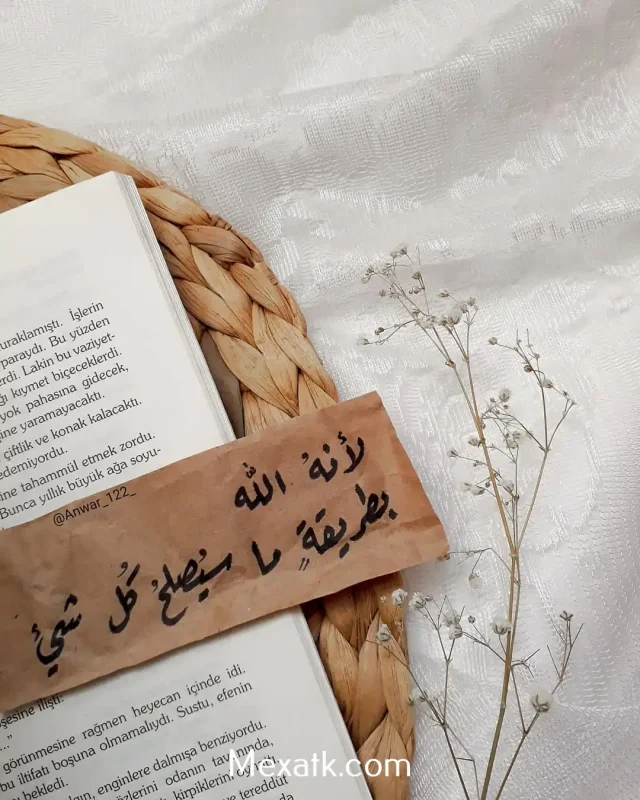 uraklamıştı. İşlerin
paraydı. Bu yüzden
erdi. Lakin bu vaziyet-
ğı kıymet biçeceklerdi.
yok pahasına gidecek,
ine yaramayacaktı.
çiftlik ve konak kalacaktı.
edemiyordu.
ine tahammül etmek zordu.
Bunca yıllık büyük ağa soyu-
@Anwar_122_
لأنهُ الله
بطريقةٍ ما سيُصلحُ كُل شيئ
şesine ilişti:
..."
görünmesine rağmen heyecan içinde idi.
bu iltifatı boşuna olmamalıydı. Sustu, efenin
bekledi.
algın, enginlere dalmışa benziyordu.
özlerini odanın tavanında,
kirpiklerin
ve tereddüt
Mexatk.com